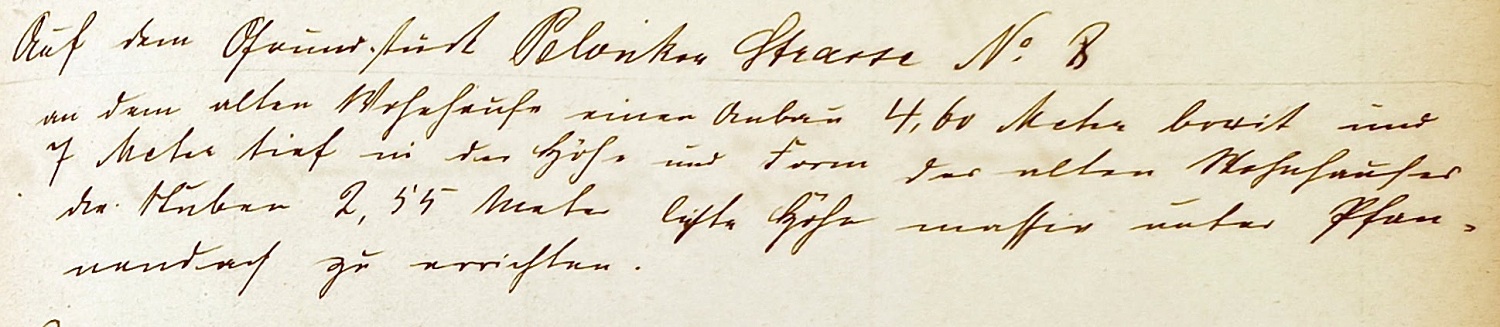 Auf dem Grundstück Pelonker Strasse No. 8
an dem alten Wohnhause einen Anbau 4,60 Meter breit und
7 Meter tief in der Höhe und Form des alten Wohnhauses
die Stuben 2,55 Meter lichte Höhe massiv unter Pfan-
nendach zu errichten.